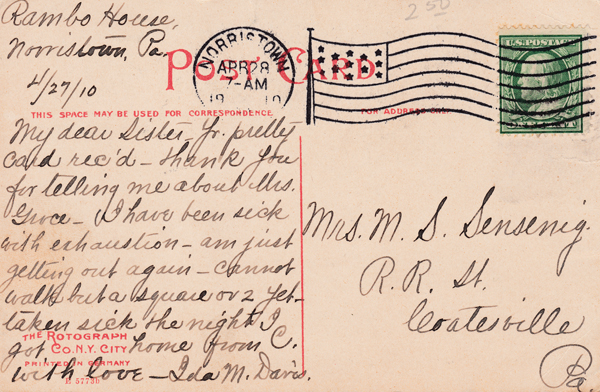 Rambo House,
Norristown, Pa.
4/27/10
2 50
NORRISTOWN
APR 28
7-AM
1910
POST CARD
U.S. POSTAGE
THIS SPACE MAY BE USED FOR CORRESPONDENCE
FOR ADDRESS ONLY
My dear Sister, Yr. pretty
card rec'd - thank you
for telling me about Mrs.
Groce - I have been sick
with exhaustion - am just
getting out again - cannot
walk but a square or 2 yet -
taken sick the night I
got home from C.
with love - Ida M. Davis.
THE ROTOGRAPH
CO. N.Y. CITY
PRINTED IN GERMANY
E. 5773b
Mrs. M. S. Sensenig.
R. R. St.
Coatesville
Pa.